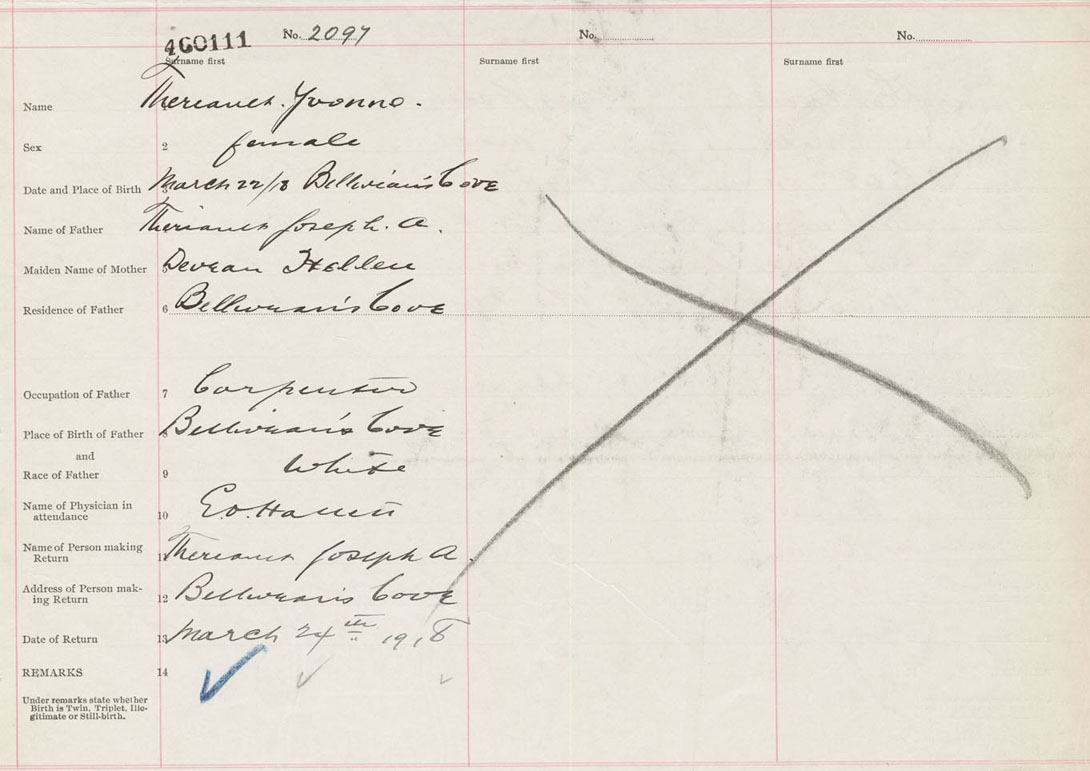 460111 No. 2097 No. No.
Surname first Surname first Surname first
Name 1 Theriault. Yvonne.
Sex 2 female
Date and Place of Birth 3 March 22/18 Belliveau's Cove
Name of Father Theriault Joseph. A.
Maiden Name of Mother 5 Deveau Hellen
Residence of Father 6 Belliveau's Cove
Occupation of Father 7 Carpenter
Place of Birth of Father 8 Belliveau's Cove
and
Race of Father 9 White
Name of Physician in
attendance 10
Name of Person making
Return 11 Theriault Joseph A.
Address of Person mak-
ing Return 12 Belliveau's Cove
Date of Return 13 March 24th 1918
REMARKS 14
Under remarks state whether
Birth is Twin, Triplet, Ille-
gitimate or Still-birth.